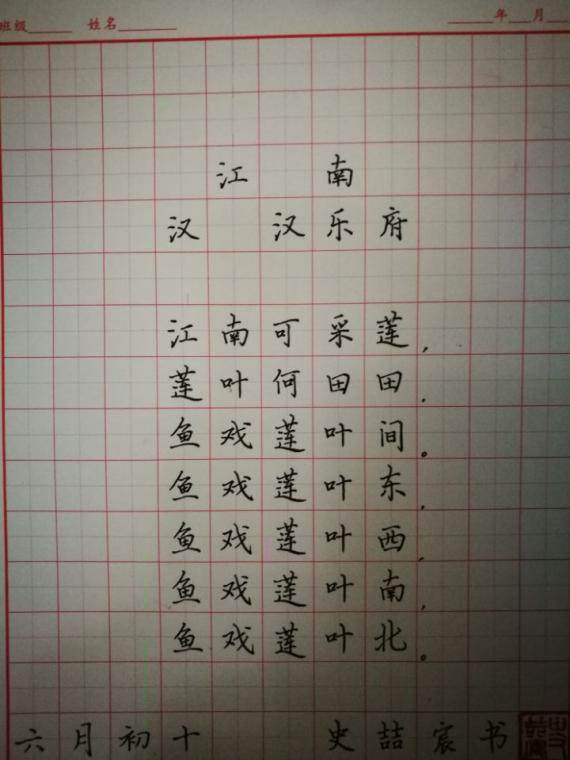 班级 姓名 年 月
江南
汉 汉乐府
江南可采莲，
莲叶何田田，
鱼戏莲叶间。
鱼戏莲叶东，
鱼戏莲叶西，
鱼戏莲叶南，
鱼戏莲叶北。
六月初十 史喆宸书